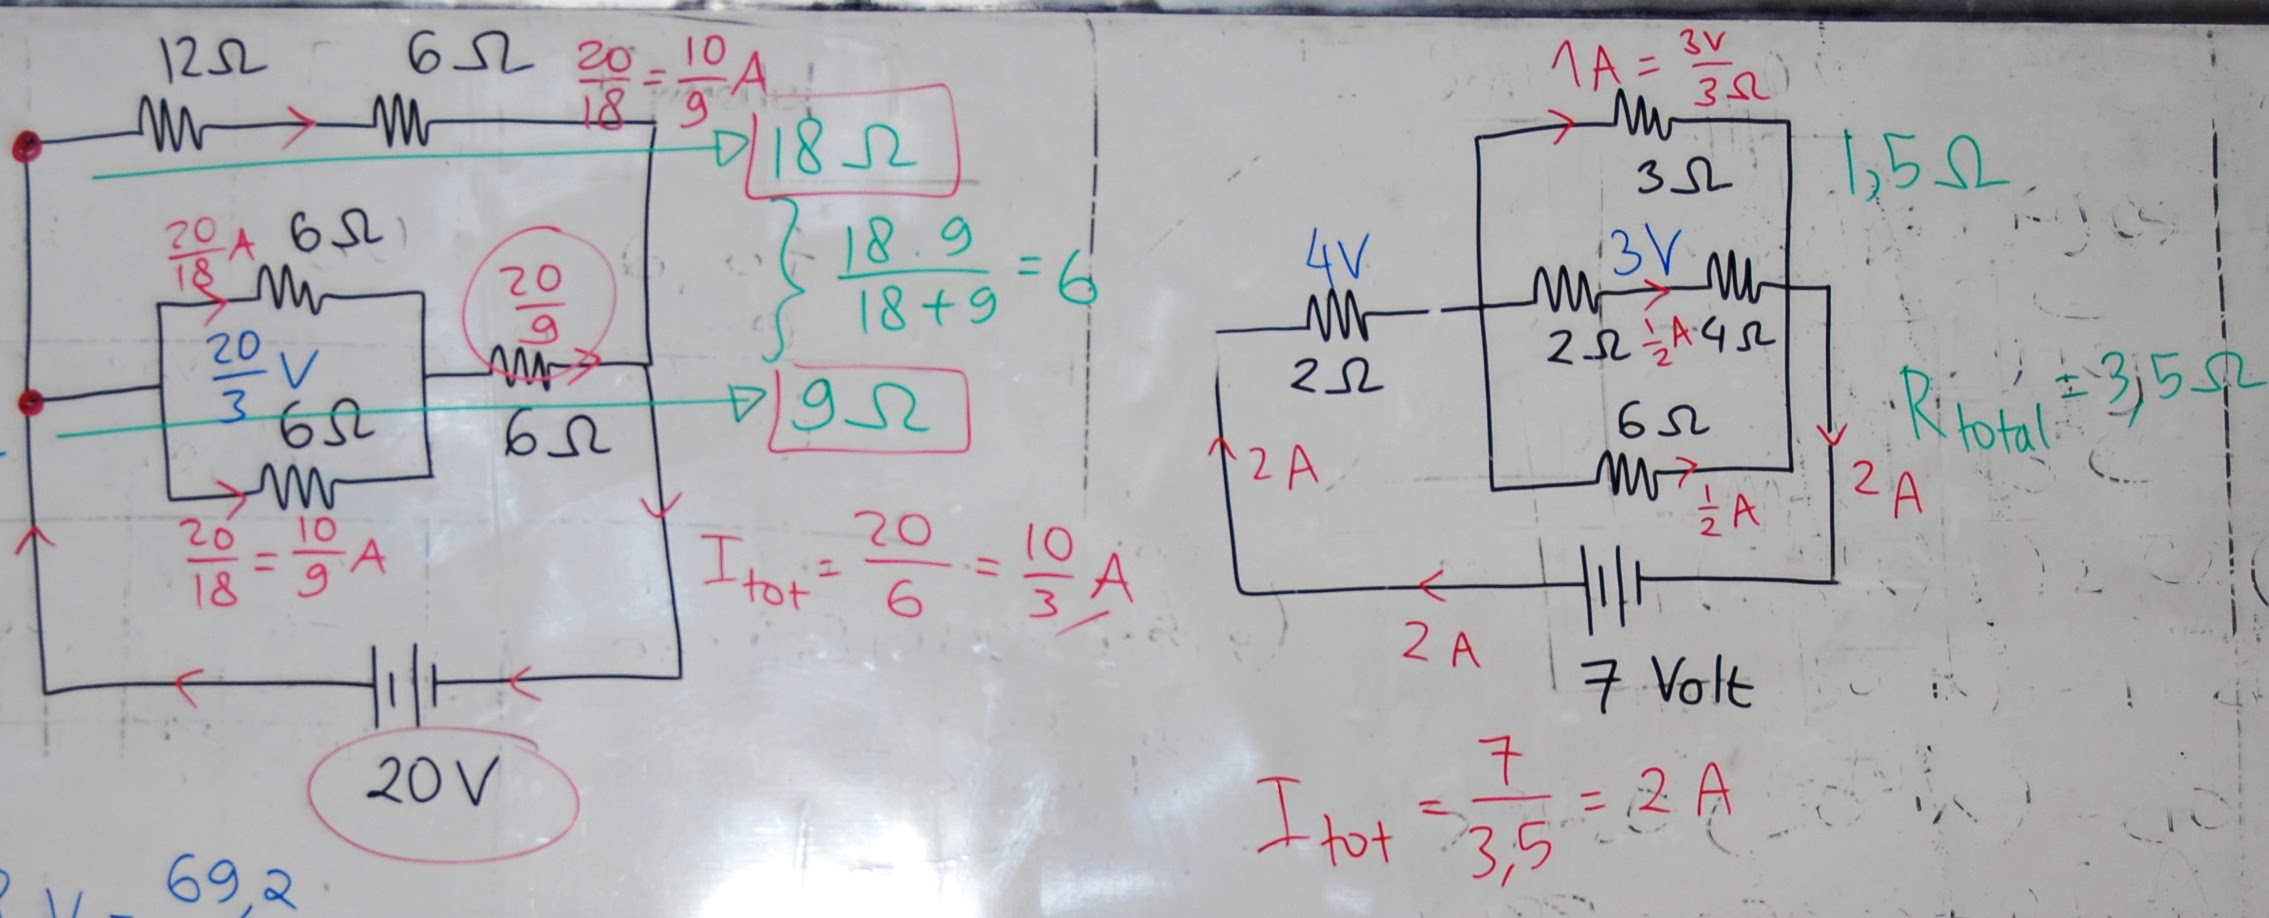 12Ω 6Ω 20/18 = 10/9 A
18Ω
20/18 A 6Ω
20/9
18.9/18+9 = 6
20/3 V
6Ω
6Ω
9Ω
20/18 = 10/9 A
I tot = 20/6 = 10/3 A
20V
69,2
1A = 3V/3Ω
3Ω
1,5Ω
4V
3V
2Ω
2Ω 1/2 A 4Ω
6Ω
R total = 3,5Ω
2A
1/2 A
2A
2A
7 Volt
I tot = 7/3,5 = 2 A